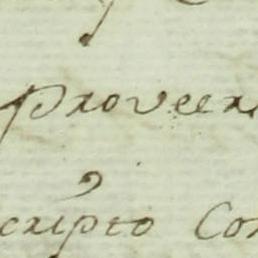 proveer
cripto Con